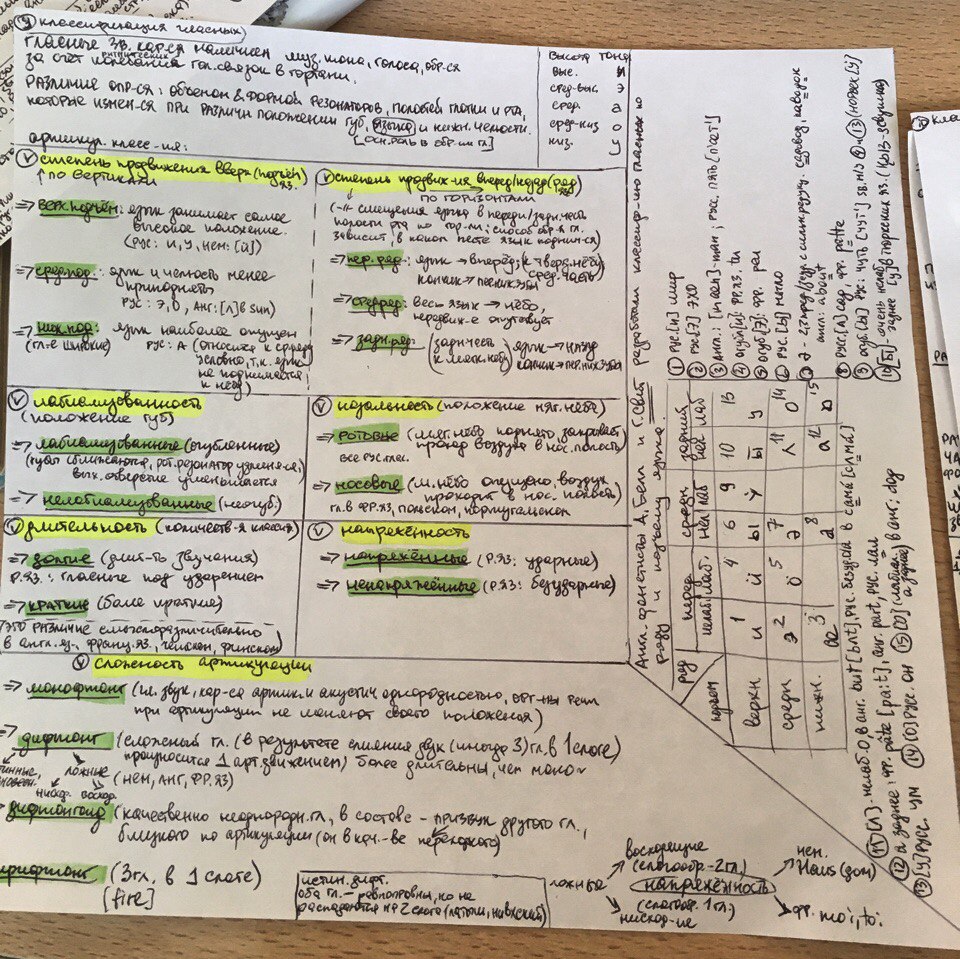 классификация гласных
гласные зв. кар-ся наличием муз. тона, голоса, обр-ся
ритмическ
за счёт колебания гол. связок в гортани.
Различие опр-ся: объёмом & формой резонаторов, полостей глотки и рта,
которые измен-ся при различн положении губ, языка и нижн. челюсти.
[осн. роль в обр-ии гл]
артикул. класс-ия:
Высота тона
выс. и
сред-выс. э
сред. а
сред-низ о
низ. у
V степень продвижения вверх (подъём)
яз.
↑ по вертикали
⇒ верх.подъём: язык занимает самое
высокое положение.
(рус: и, у, нем: [ü])
⇒ сред.под.: язык и челюсть менее
приподняты
рус: э, о, анг: [ʌ] в sun)
⇒ ниж.под.: язык наиболее опущен
(гл-е широкие) рус: а (относится к среднему
условно, т.к. язык
не поднимается
к нёбу)
V степень продвиж-ия вперёд/назад (ряд)
по горизонтали
(-я смещения языка в передн/задн. часть
полости рта по гор-ли; способ обр-я гл.
зависит, в каком месте язык поднит-ся)
⇒ пер.ряд: язык → вперёд; к тверд. нёбу
сред. часть
кончик → нижн. зубы
⇒ средряд: весь язык → нёбо,
передвиж-е отсутствует
⇒ задн.ряд: (задн часть язык → назад
к мягк. нёбу) кончик → пер. ниж зубов
V лабиализованность
(положение губ)
⇒ лабиализованные (огубленные)
(губы сближаются, рот. резонатор удлиня-ся,
вых. отверстие уменьшается
⇒ нелабиализованные (неогуб.)
V назальность (положение мяг. нёба)
⇒ ротовые (мяг. нёбо поднято, закрывает
проход воздуха в нос. полость)
все рус. глас.
⇒ носовые (м. нёбо опущено, воздух
проходит в нос. полость
гл. в фр.яз, польском, португальском
V длительность (количеств-я классиф)
⇒ долгие (длит-ть звучания)
Р.яз.: гласные под ударением
⇒ краткие (более краткие)
это различие смыслоразличительно
в англ. яз., франц. яз, чешском, финском
V напряжённость
⇒ напряжённые (Р.яз: ударные)
⇒ ненапряжённые (Р.яз: безударные)
V сложность артикуляции
⇒ монофтонг (гл. звук, кар-ся артик. и акустич однородностью, орг-ны речи
при артикуляции не меняют своего положения)
⇒ дифтонг (сложный гл. (в результате слияния двух (иногда 3) гл. в 1 слоге)
произносится 1 арт. движением) более длительны, чем моно~
ложные (нем, анг, фр.яз)
нисход. восход.
дифтонгоид (качественно неоднородн. гл., в составе – призвук другого гл.,
близкого по артикуляции (он в кач-ве переходного)
трифтонг (3 гл. в 1 слоге)
[fire]
истин. дифт.
оба гл. – равноправны, но не
распадаются на 2 слога (латыш, нивхский)
ложные
восходящие
(слогообр – 2 гл.)
напряжённость
(слогообр. 1 гл.)
нисход-ие
нем.
Haus (дом)
фр. moi, toi
Англ. фонетисты А. Белл и Г. Свит разработали классиф-цию гласных по
ряду и подъёму языка.
ряд перед. средн задний
подъём нелаб лаб. нел лаб нелаб лаб
верхн и 1 ü 4 ы 6 ÿ 9 ы̄ 10 у 13
средн э 2 ö 5 ə 7 ʌ 11 о 14
нижн. ae 3 а 8 а 12 ɒ 15
① рус [и] мир
② рус [э] эхо
③ англ.: [mæn] man; рус. пять [п'æт']
④ огуб [и]: фр.яз. tu
⑤ огуб [э]: фр. peu
⑥ рус. [ы] мыло
англ: about
⑧ рус [а] сад, фр. patte
⑨ огуб [ы] рус: чуть
⑪ [ʌ] – нелаб. о, в анг. but [bʌt], рус. безудой в сама [сʌма]
⑫ а заднее: фр. pâte [pa:t], анг. part, рус. пал
⑬ [у] рус. ум ⑭ [о] рус. он ⑮ [ɒ] (лабиал в анг: dog
а заднее)